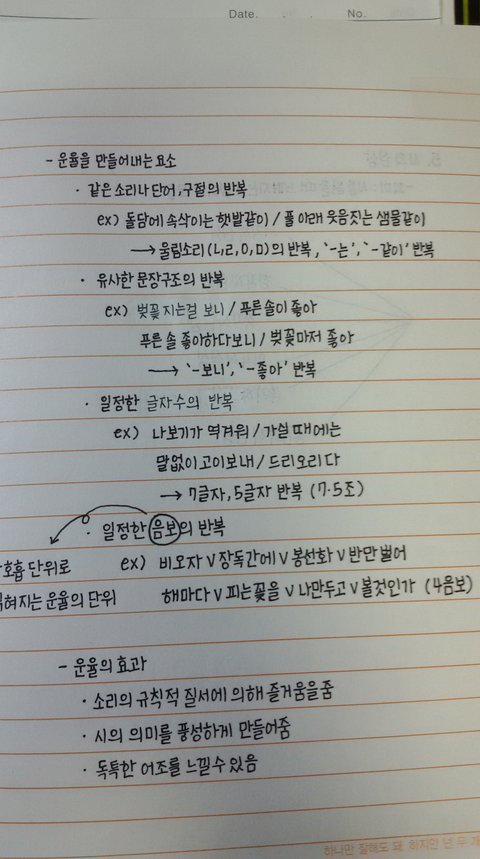 Date. No.
- 운율을 만들어내는 요소
· 같은 소리나 단어, 구절의 반복
ex) 돌담에 속삭이는 햇발같이 / 풀 아래 웃음짓는 샘물같이
→ 울림소리(ㄴ,ㄹ,ㅇ,ㅁ)의 반복, '-는', '-같이' 반복
· 유사한 문장구조의 반복
ex) 벚꽃 지는걸 보니 / 푸른솔이 좋아
푸른솔 좋아하다보니 / 벚꽃마저 좋아
→ '-보니', '-좋아' 반복
· 일정한 글자수의 반복
ex) 나보기가 역겨워 / 가실 때에는
말없이 고이보내 / 드리오리다
→ 7글자, 5글자 반복 (7·5조)
· 일정한 음보의 반복
호흡 단위로
혀지는 운율의 단위
ex) 비오자 V 장독간에 V 봉선화 V 반만 벌어
해마다 V 피는꽃을 V 나만두고 V 볼것인가 (4음보)
- 운율의 효과
· 소리의 규칙적 질서에 의해 즐거움을 줌
· 시의 의미를 풍성하게 만들어줌
· 독특한 어조를 느낄수 있음
하나만 잘해도 돼. 하지만 넌 두 개